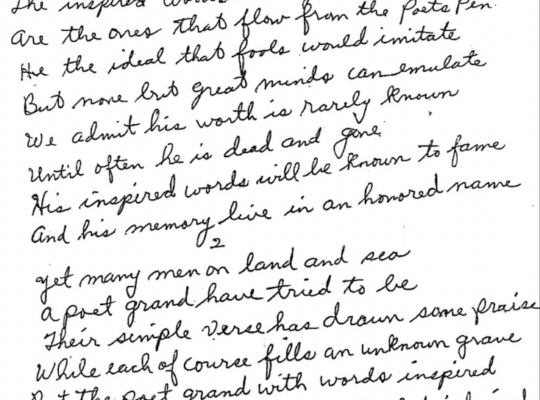 The inspired
Are the ones that flow from the Poets Pen
He the ideal that fools would imitate
But none but great minds can emulate
We admit his worth is rarely known
Until often he is dead and gone
His inspired words will be known to fame
And his memory live in an honored name
2
yet many men on land and sea
a poet grand have tried to be
Their simple verse has drawn some praise
While each of course fills an unknown grave
But the Poet grand with words inspired